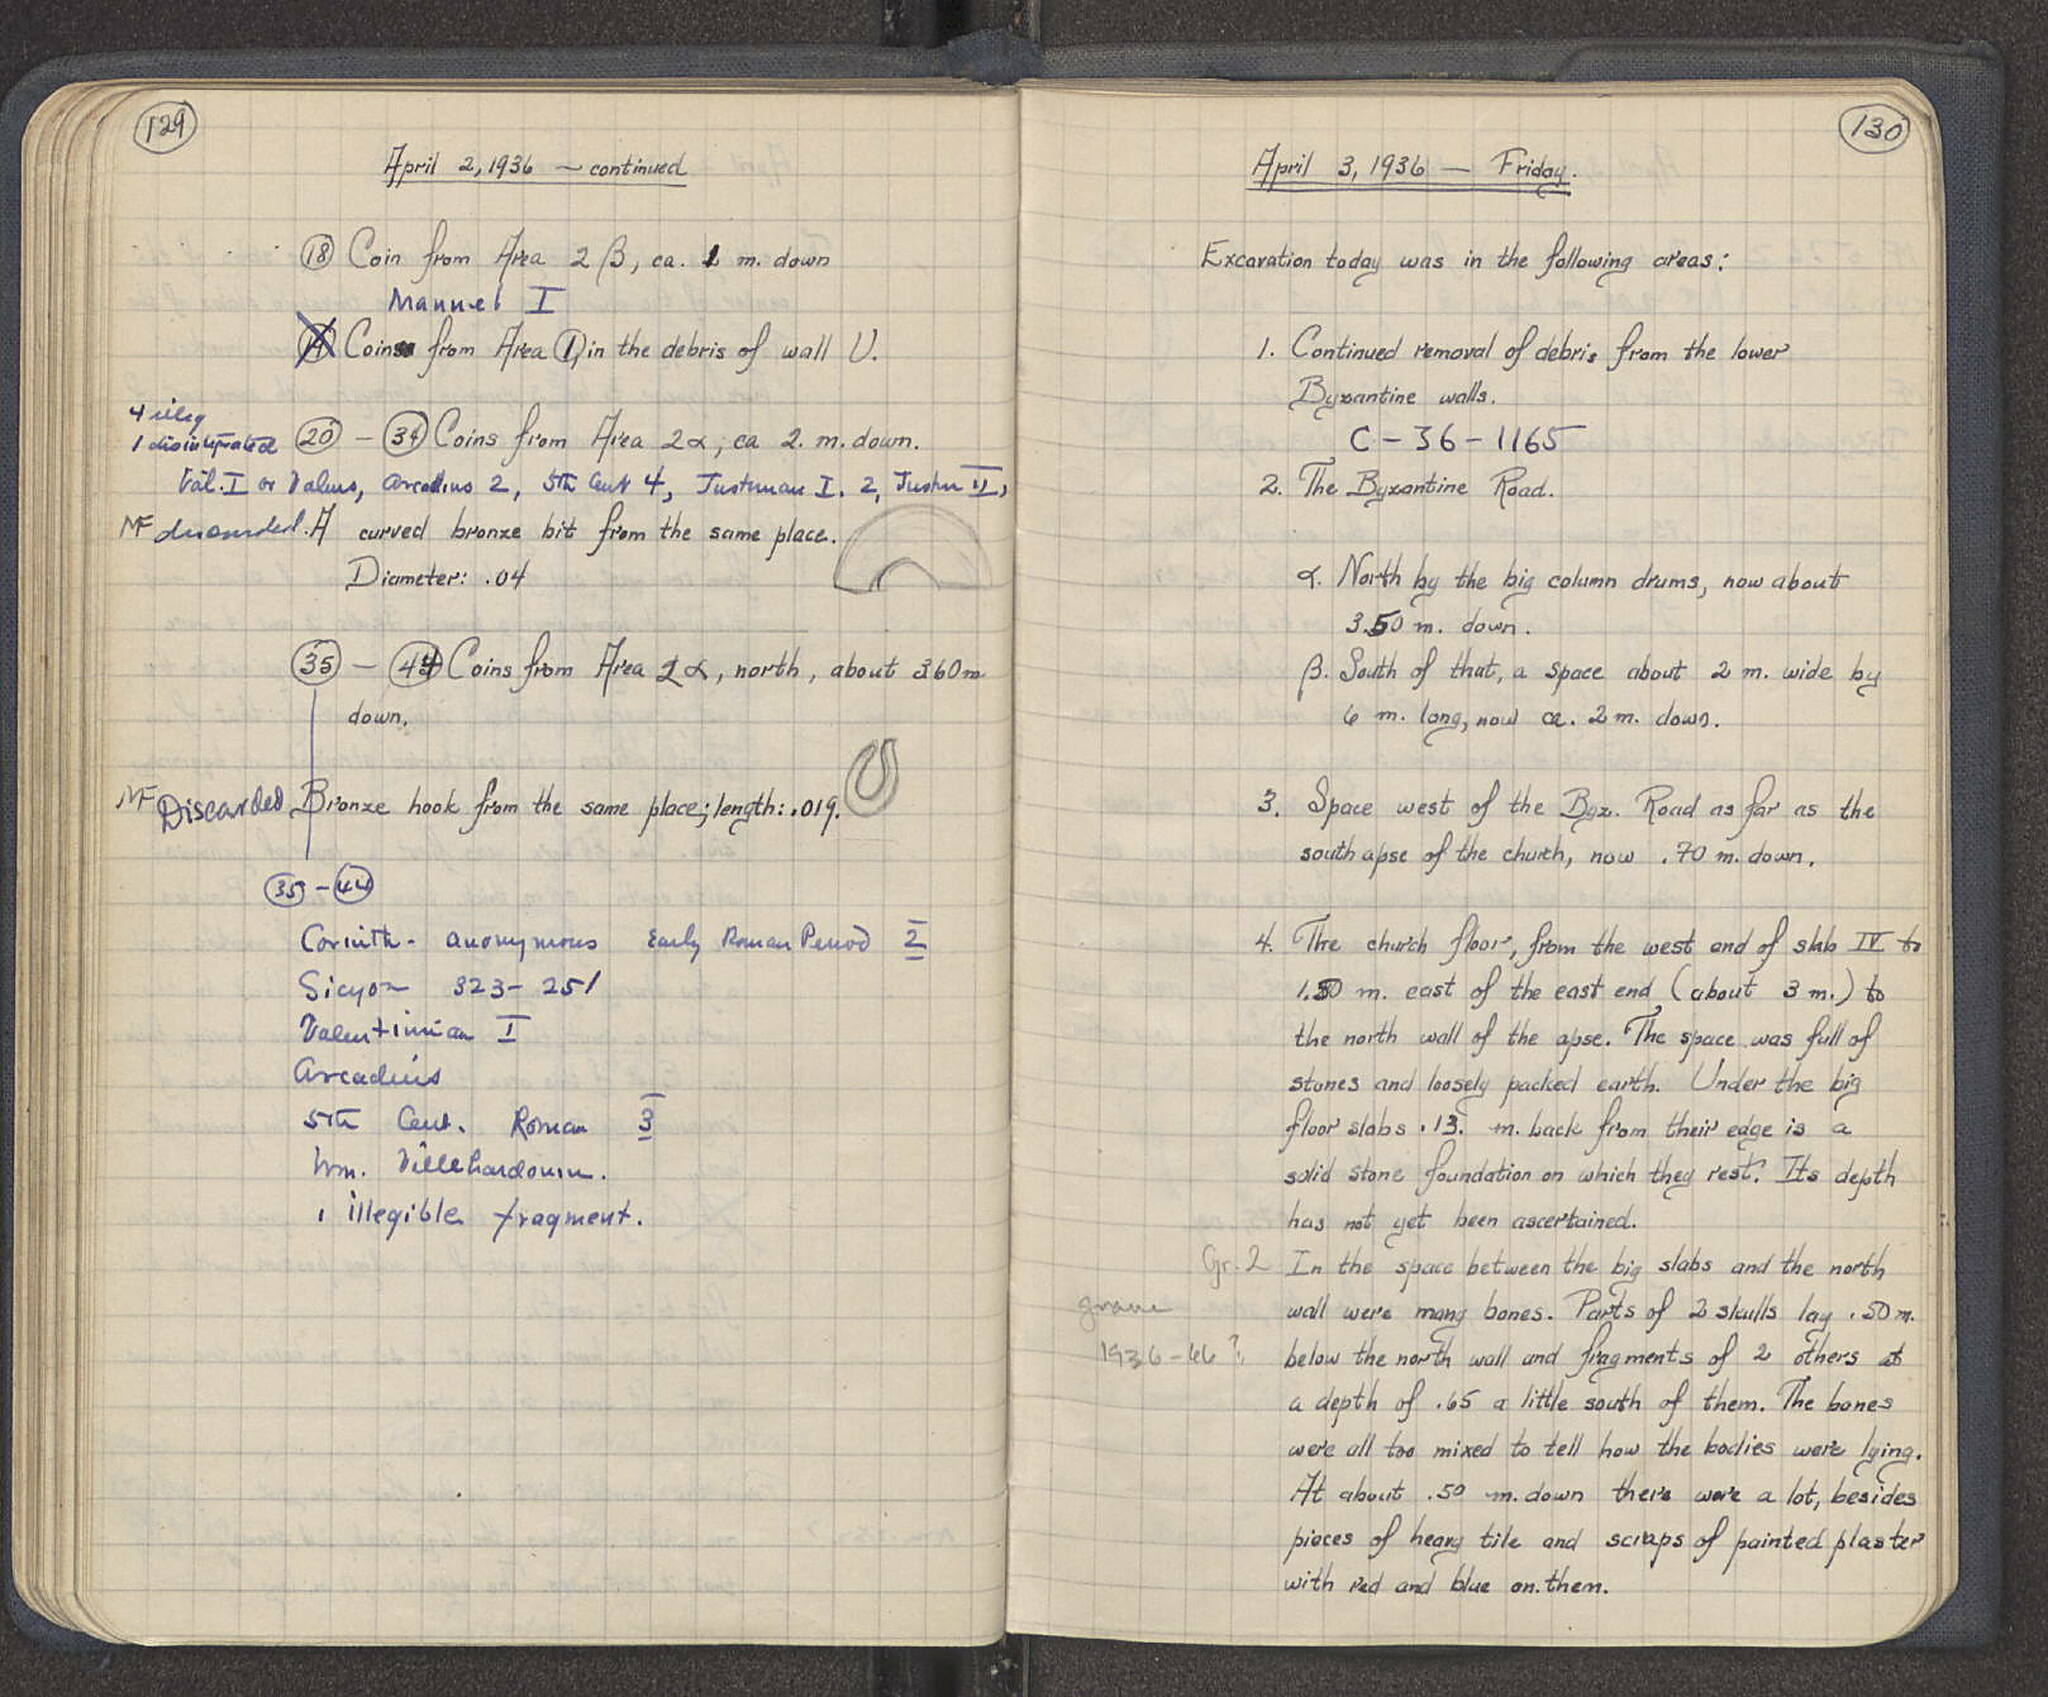 129
April 2, 1936 — continued
18 Coin from Area 2 β, ca. 1 m. down
Manuel I
Coin from Area 1 in the debris of wall U.
4 illeg
1 disintegrated 20 – 34 Coins from Area 2α, ca 2. m. down.
Val. I or Valens, Arcadius 2, 5th Cent 4, Justinian I. 2, Justin II,
MF discarded. A curved bronze bit from the same place.
Diameter: .04
35 – 44 Coins from Area 2 α, north, about 3.60 m
down.
MF Discarded Bronze hook from the same place; length: .019.
35 – 44
Corinth - anonymous Early Roman Period 2
Sicyon 323 – 251
Valentinian I
Arcadius
5th Cent. Roman 3
Wm. Villehardouin.
1 illegible fragment.
130
April 3, 1936 — Friday.
Excavation today was in the following areas:
1. Continued removal of debris from the lower
Byzantine walls.
C – 36 – 1165
2. The Byzantine Road.
α. North by the big column drums, now about
3.50 m. down.
β. South of that, a space about 2 m. wide by
6 m. long, now ca. 2 m. down.
3. Space west of the Byz. Road as far as the
south apse of the church, now .70 m. down.
4. The church floor, from the west end of slab IV to
1.50 m. east of the east end (about 3 m.) to
the north wall of the apse. The space was full of
stones and loosely packed earth. Under the big
floor slabs .13. m. back from their edge is a
solid stone foundation on which they rest. Its depth
has not yet been ascertained.
Gr. 2 In the space between the big slabs and the north
grave wall were many bones. Parts of 2 skulls lay .50 m.
1936 – 66 ? below the north wall and fragments of 2 others at
a depth of .65 a little south of them. The bones
were all too mixed to tell how the bodies were lying.
At about .50 m. down there were a lot, besides
pieces of heavy tile and scraps of painted plaster
with red and blue on them.